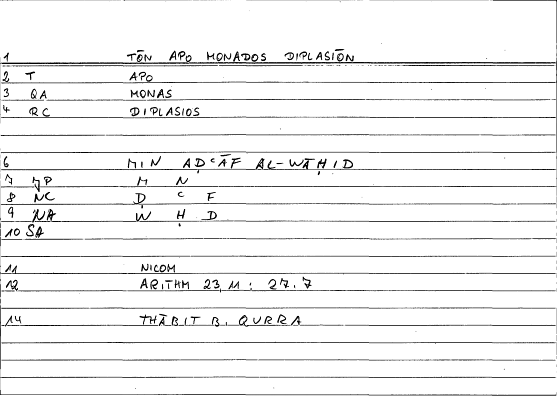 1 TŌN APO MONADOS DIPLASIŌN
2 T APO
3 QA MONAS
4 RC DIPLASIOS
6 MIN AḌᶜĀF AL-WĀḤID
7 JP M N
8 NC Ḍ ᶜ F
9 NA W Ḥ D
10 SA
11 NICOM
12 ARITHM 23,11: 27.7
14 THĀBIT B. QURRA